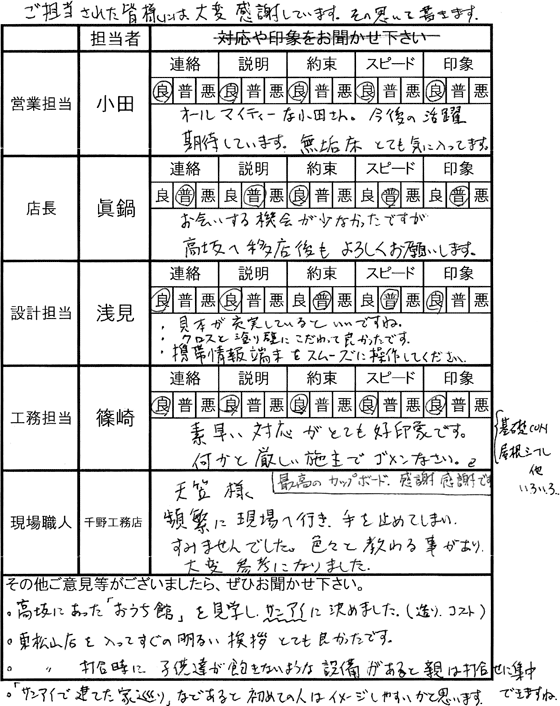 ご担当された皆様には大変感謝しています。その思いで書きます。
担当者 対応や印象をお聞かせ下さい
連絡 説明 約束 スピード 印象
営業担当 小田 良 普 悪 良 普 悪 良 普 悪 良 普 悪 良 普 悪
オールマイティーな小田さん。今後の活躍
期待しています。無垢床とても気に入ってます。
連絡 説明 約束 スピード 印象
店長 眞鍋 良 普 悪 良 普 悪 良 普 悪 良 普 悪 良 普 悪
お会いする機会が少なかったですが
高坂へ移店後もよろしくお願いします。
連絡 説明 約束 スピード 印象
設計担当 浅見 良 普 悪 良 普 悪 良 普 悪 良 普 悪 良 普 悪
・見本が充実しているといいですね。
・クロスと塗り壁にこだわって良かったです。
・携帯情報端末をスムーズに操作してください。
連絡 説明 約束 スピード 印象
工務担当 篠崎 良 普 悪 良 普 悪 良 普 悪 良 普 悪 良 普 悪
素早い対応がとても好印象です。
何かと厳しい施主でゴメンなさい。
基礎
屋根
他
いろいろ…
現場職人 千野工務店
天笠様、
最高のカップボード、感謝感謝です
頻繁に現場へ行き、手を止めてしまい
すみませんでした。色々と教わる事があり、
大変参考になりました。
その他ご意見等がございましたら、ぜひお聞かせ下さい。
。高坂にあった「おうち館」を見学し、サンアイに決めました。(造り、コスト)
。東松山店を入ってすぐの明るい挨拶とても良かったです。
。 〃 打合時に子供達が飽きないような設備があると親は打合せに集中
できますね。
。「サンアイで建てた家巡り」などあると初めての人はイメージしやすいかと思います。